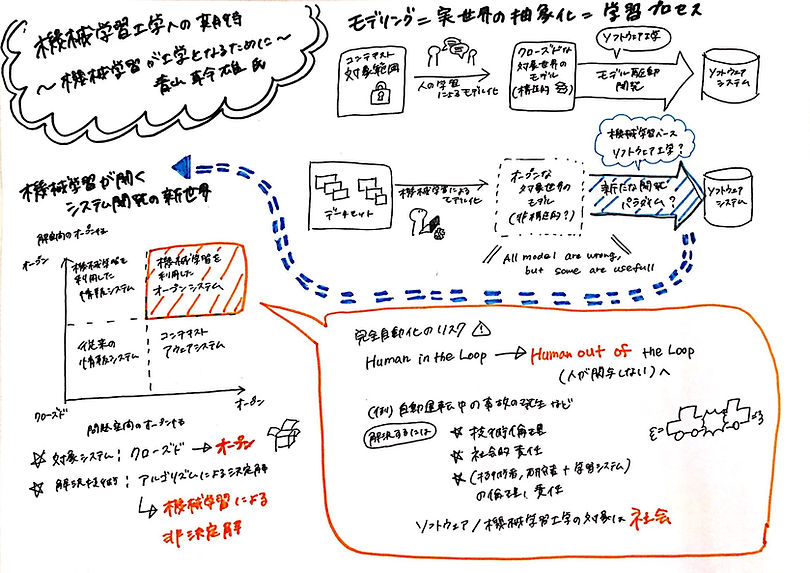 機械学習工学への期待
〜機械学習が工学となるために〜
青山 幹雄 氏
モデリング = 実世界の抽象化 = 学習プロセス
コンテキスト
対象範囲
人の学習
によるモデル化
クローズドな
対象世界の
モデル
(構造的)
ソフトウェア工学
モデル駆動
開発
ソフトウェア
システム
データセット
機械学習による
モデル化
オープンな
対象世界の
モデル
(非構造的?)
機械学習ベース
ソフトウェア工学?
新たな開発
パラダイム?
ソフトウェア
システム
All model are wrong,
but some are usefull
機械学習が開く
システム開発の新世界
解空間のオープン化
オープン
機械学習を
利用した
情報システム
機械学習を
利用した
オープンシステム
従来の
情報システム
コンテキスト
アウェアシステム
クローズド
オープン
問題空間のオープン化
☆ 対象システム; クローズド → オープン
☆ 解決技術; アルゴリズムによる決定解
↳ 機械学習による
非決定解
完全自動化のリスク
Human in the Loop → Human out of the Loop
(人が関与しない) へ
(例) 自動運転中の事故の発生 など
解決するには
☆ 技術的倫理
☆ 社会的責任
☆ (技術者, 開発者 + 学習システム)
の倫理, 責任
ソフトウェア/機械学習工学の対象は 社会